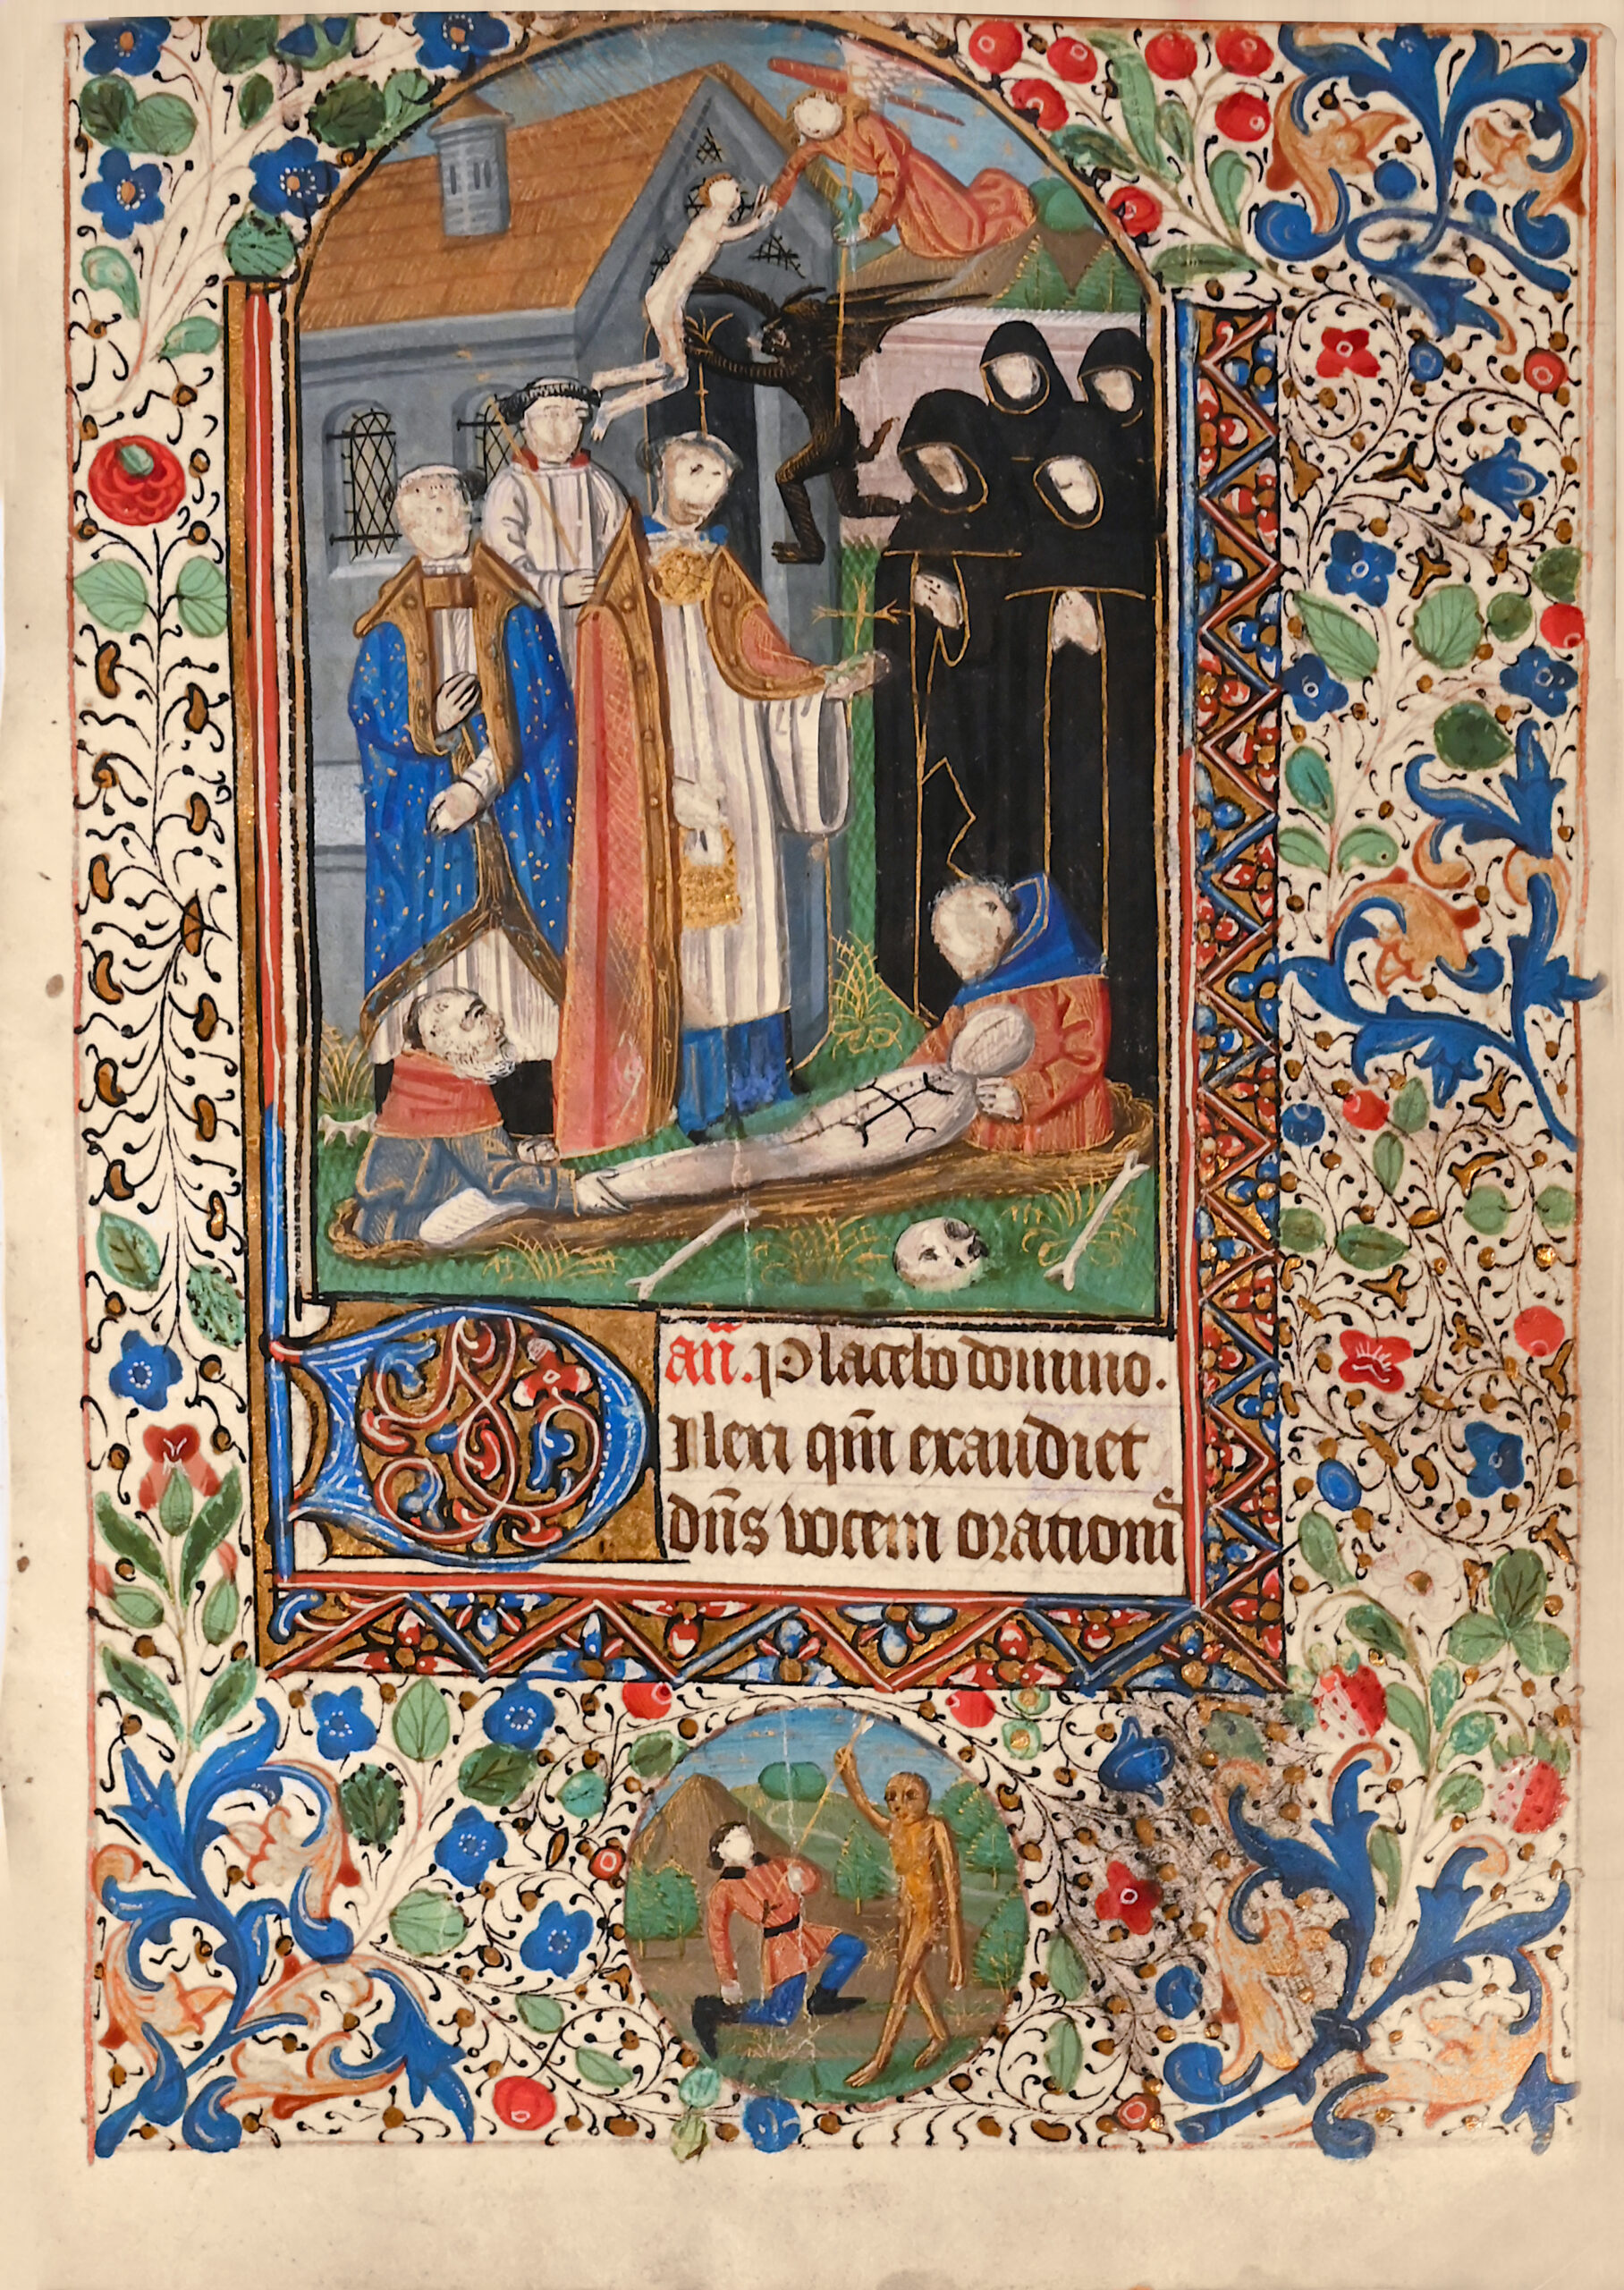 añ. Placebo domino.
Dilexi qm̃ exaudiet
dñs vocem orationis